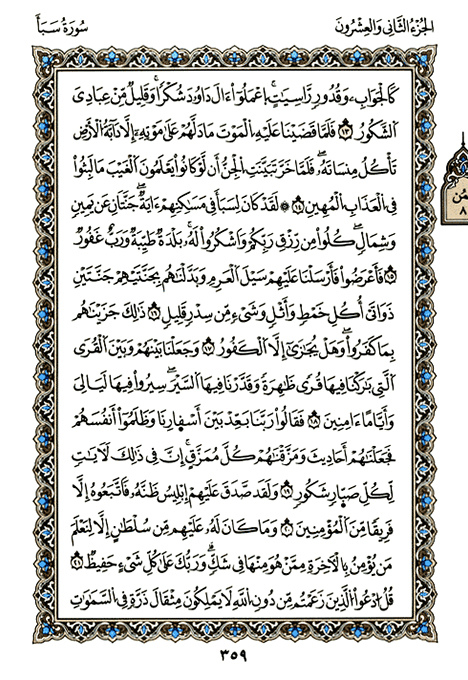 الجزء الثاني والعشرون
سورة سبأ
كالجواب ۦ وقدور راسيت اعملوا ءال داوۥد شكرا وقليل من عبادي
الشكور ١٣ فلما قضينا عليه الموت ما دلهم على موته إلا دابة الأرض
تأكل منساته فلما خر تبينت الجن أن لو كانوا يعلمون الغيب ما لبثوا
في العذاب المهين ١٤ ۞ لقد كان لسبأ في مسكنهم ءاية جنتان عن يمين
وشمال كلوا من رزق ربكم واشكروا له بلدة طيبة ورب غفور
١٥ فأعرضوا فأرسلنا عليهم سيل العرم وبدلنهم بجنتيهم جنتين
ذواتى أكل خمط وأثل وشىء من سدر قليل ١٦ ذلك جزينهم
بما كفروا وهل يجزى إلا الكفور ١٧ وجعلنا بينهم وبين القرى
التى بركنا فيها قرى ظهرة وقدرنا فيها السير سيروا فيها ليالى
وأياما ءامنين ١٨ فقالوا ربنا بعد بين أسفارنا وظلموا أنفسهم
فجعلنهم أحاديث ومزقنهم كل ممزق إن في ذلك لأيت
لكل صبار شكور ١٩ ولقد صدق عليهم إبليس ظنه فاتبعوه إلا
فريقا من المؤمنين ٢٠ وما كان له عليهم من سلطن إلا لنعلم
من يؤمن بالأخرة ممن هو منها في شك وربك على كل شىء حفيظ ٢١
قل ادعوا الذين زعمتم من دون الله لا يملكون مثقال ذرة في السموت
٣٥٩